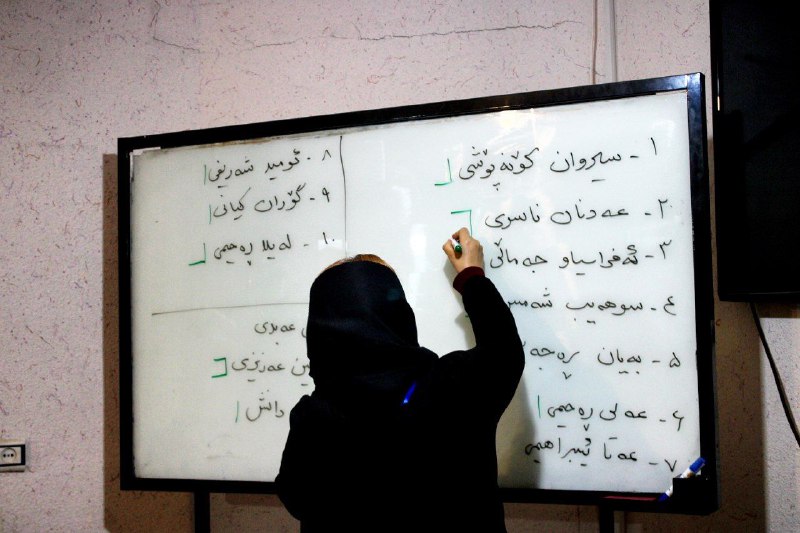 ١- سیروان کۆنەپۆشی
٢- عەدنان ناسری
٣- ئەفراسیاو جەماڵی
٤- سوهەیب
٥- بەیان
٦- عەلی ڕەحیمی
٧- عەتا ئیبراهیمی
٨- ئومید شەریفی
٩- گۆران کیانی
١٠- لەیلا ڕەحیمی
عەبدی
عەزیزی
دانش